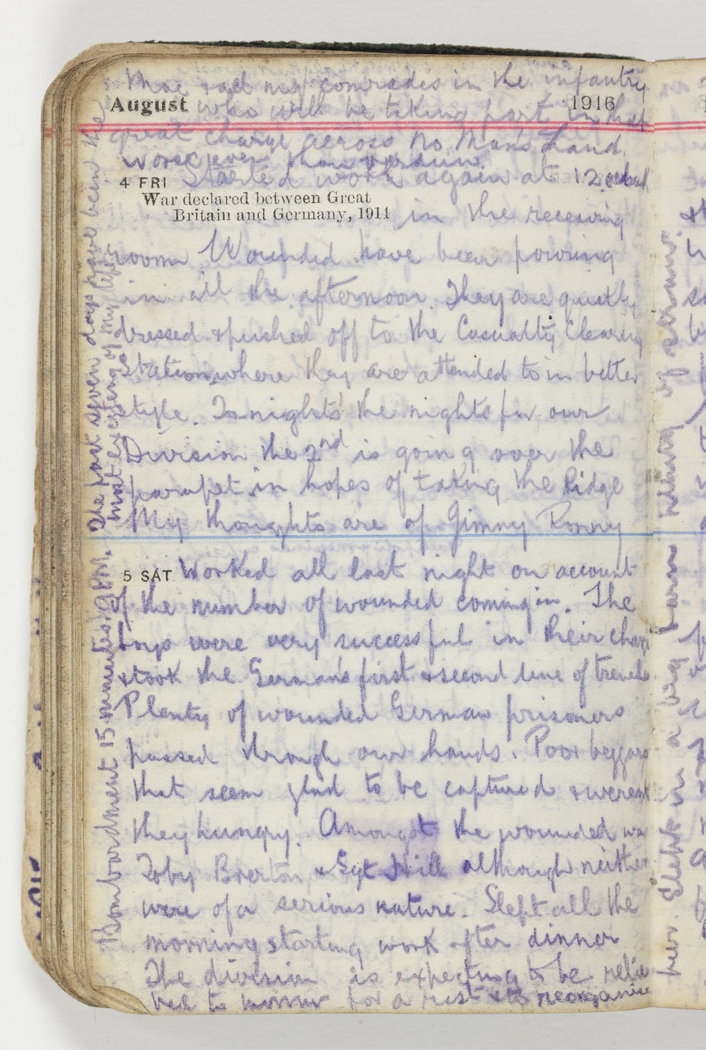 Mac & all my comrades in the infantry
August 1916
who will be taking part in that
great charge across No Man's Land
worse ever than verdun.
Started work again at 12 oclock
4 FRI
War declared between Great
Britain and Germany, 1914
in the receiving
room Wounded have been pouring
in all the afternoon. They are quickly
dressed & pushed off to the Casualty Clearing
Station, where they are attended to in better
style. To nights the nights for our
Division the 2nd is going over the
parapet in hopes of taking the Ridge
My thoughts are of Jimmy Ronny
5 SAT Worked all last night on account
of the number of wounded coming in. The
boys were very successful in their charge
& took the German's first & second line of trenches
Plenty of wounded German prisoners
passed through our hands. Poor beggars
that seem glad to be captured & werent
they hungry. Amongst the wounded was
Toby Brerton & Sgt Hill although neither
were of a serious nature. Slept all the
morning starting work after dinner
The division is expecting to be relie
ved to for a rest & to reorganise
The past seven days have been the
most exciting of my life
Bombardment 15 minutes 9 PM.
Slept in a big barn plenty of straw.